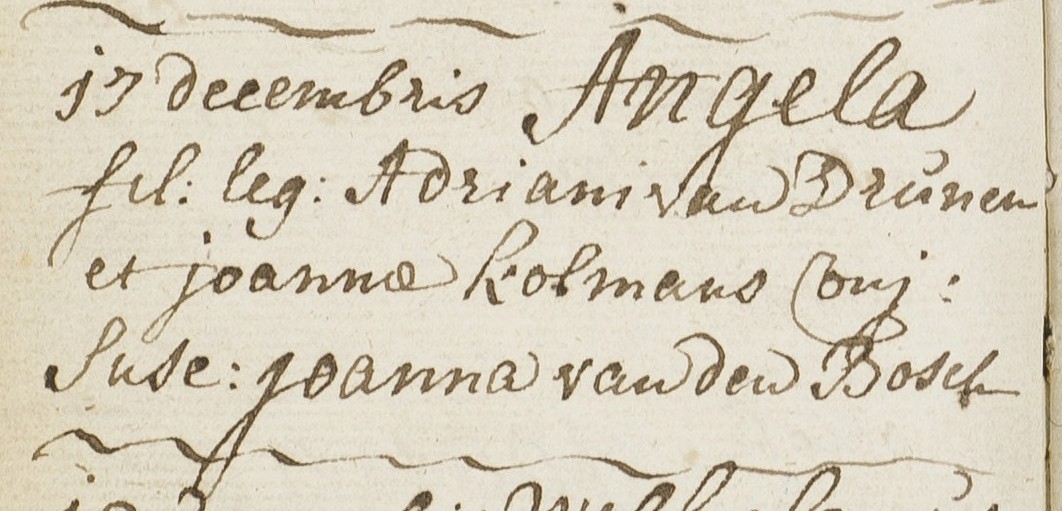 17 decembris Angela
fil: leg: Adriani van Drúnen
et joannæ kolmans Conj:
Susc: joanna van den Bosch